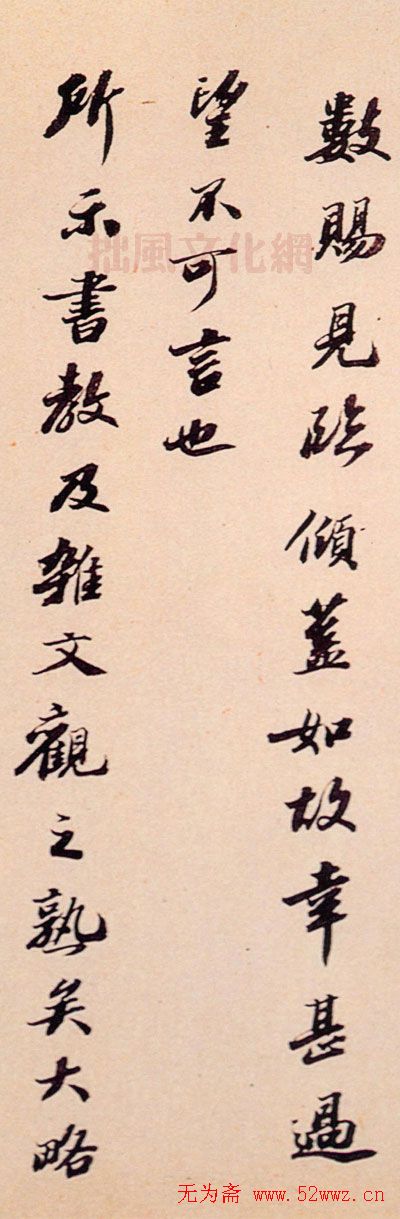 數賜見臨傾蓋如故幸甚過
望不可言也
所示書教及雜文觀之熟矣大略
拙風文化網
无为斋 www.52wwz.cn